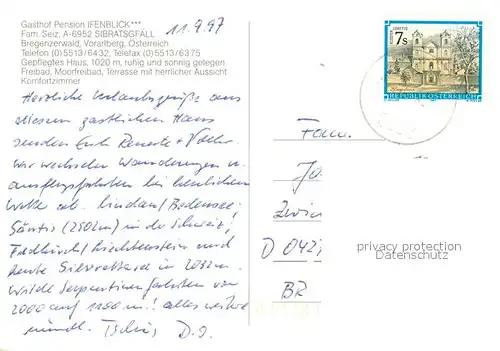 Gasthof Pension IFENBLICK***
Fam. Seiz, A-6952 SIBRATSGFÄLL
Bregenzerwald, Vorarlberg, Österreich
Telefon (0)5513/6432, Telefax (0)5513/6375
Gepflegtes Haus, 1020 m, ruhig und sonnig gelegen
Freibad, Moorfreibad, Terrasse mit herrlicher Aussicht
Komfortzimmer
11.9.97
7s
REPUBLIK ÖSTERREICH
Herzliche Urlaubsgrüße aus
diesem gastlichen Haus
senden Euch Renate + 
Wir wechseln Wanderungen u.
Ausflugsfahrten bei herrlichem
Wetter ab. Lindau/Bodensee!
Säntis (2502m) in der Schweiz!
Feldkirch/Liechtenstein und
heute Silvretta in 2032m.
Wilde Serpentinenfahrten von
2000 auf 1100 m! Alles weitere
mündl. Tschüs D.O.
Fam.
Jo
Zwick
D 042
BR
privacy protection
Datenschutz